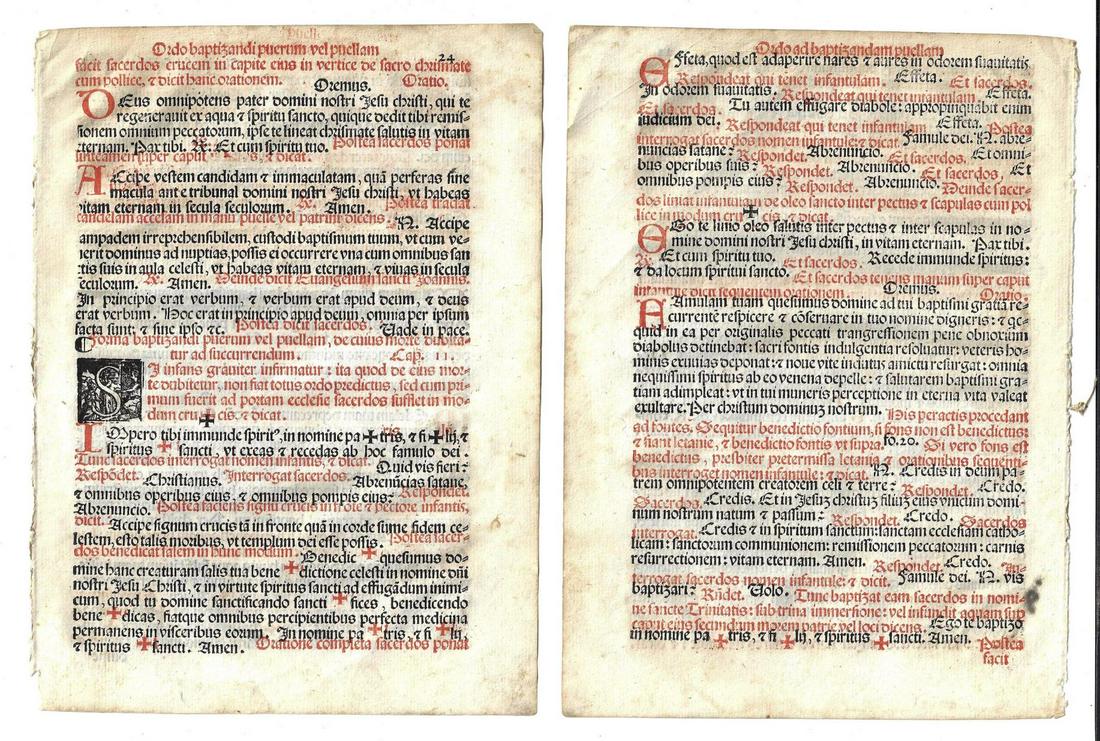 Ordo baptizandi puerum vel puellam
24
facit sacerdos crucem in capite eius in vertice de sacro chrismate
cum pollice, & dicit hanc orationem. Oremus. Oratio.
DEus omnipotens pater domini nostri Jesu christi, qui te
regenerauit ex aqua & spiritu sancto, quique dedit tibi remis-
sionem omnium peccatorum, ipse te lineat chrismate salutis in vitam
eternam. Pax tibi. ℟. Et cum spiritu tuo. Postea sacerdos ponat
linteamen super caput & dicat.
ACcipe vestem candidam & immaculatam, quã perferas sine
macula ante tribunal domini nostri Jesu christi, vt habeas
vitam eternam in secula seculorum. ℟. Amen. Postea tradat
candelam accensam in manu puelle vel patrini dicens. N. Accipe
lampadem irreprehensibilem, custodi baptismum tuum, vt cum ve-
nerit dominus ad nuptias, possis ei occurrere vna cum omnibus san-
ctis suis in aula celesti, vt habeas vitam eternam, & viuas in secula
seculorum. ℟. Amen. Deinde dicit Euangelium sancti Joannis.
In principio erat verbum, & verbum erat apud deum, & deus
erat verbum. Hoc erat in principio apud deum, omnia per ipsum
facta sunt: & sine ipso &c. Postea dicit sacerdos. Uade in pace.
¶ Forma baptizandi puerum vel puellam, de cuius morte dubita-
tur ad succurrendum. Cap. 11.
SI infans grauiter infirmatur: ita quod de eius mor-
te dubitetur, non fiat totus ordo predictus, sed cum pri-
mum fuerit ad portam ecclesie sacerdos sufflet in mo-
dum cru ✠ cis, & dicat.
IMpero tibi immunde spirit9, in nomine pa ✠ tris, & fi ✠ lij, &
spiritus ✠ sancti, vt exeas & recedas ab hoc famulo dei.
Tunc sacerdos interrogat nomen infantis, & dicat. Quid vis fieri?
Respõdet. Christianus. Interrogat sacerdos. Abrenuncias satane,
& omnibus operibus eius, & omnibus pompis eius? Respondet.
Abrenuncio. Postea faciens signum crucis in frõte & pectore infantis,
dicit. Accipe signum crucis tã in fronte quã in corde sume fidem ce-
lestem, esto talis moribus, vt templum dei esse possis. Postea sacer-
dos benedicat salem in hunc modum. Benedic ✠ quesimus do-
mine hanc creaturam salis tua bene ✠ dictione celesti in nomine dñi
nostri Jesu Christi, & in virtute spiritus sancti ad effugãdũ inimi-
cum, quod tu domine sanctificando sancti ✠ fices, benedicendo
bene ✠ dicas, fiatque omnibus percipientibus perfecta medicina
permanens in visceribus eorum. In nomine pa ✠ tris, & fi ✠ lij,
& spiritus ✠ sancti. Amen. Oratione completa sacerdos ponat
Ordo ad baptizandam puellam
EFfeta, quod est adaperire nares & aures in odorem suauitatis
Respondeat qui tenet infantulam. Effeta. Et sacerdos.
In odorem suauitatis. Respondeat qui tenet infantulam. Effeta.
Et sacerdos. Tu autem effugare diabole: appropinquabit enim
iudicium dei. Respondeat qui tenet infantulam Effeta. Postea
interrogat sacerdos nomen infantule: & dicat. Famule dei. N. abre-
nuncias satane? Respondet. Abrenuncio. Et sacerdos. Et omni-
bus operibus suis? Respondet. Abrenuncio. Et sacerdos, Et
omnibus pompis eius? Respondet. Abrenuncio. Deinde sacer-
dos liniat infantulam de oleo sancto inter pectus & scapulas cum pol
lice in modum cru ✠ cis, & dicat.
EGo te linio oleo salutis inter pectus & inter scapulas in no-
mine domini nostri Jesu christi, in vitam eternam. Pax tibi.
℟. Et cum spiritu tuo. Et sacerdos. Recede immunde spiritus:
& da locum spiritui sancto. Et sacerdos tenens manum super caput
infantule dicit sequentem orationem. Oremus. Oratio.
FAmulam tuam quesumus domine ad tui baptismi gratiã re
currentẽ respicere & cõseruare in tuo nomine digneris: & qc-
quid in ea per originalis peccati trangressionem pene obnoxium
diabolus detinebat: sacri fontis indulgentia resoluatur: veteris ho-
minis exuuias deponat: & noue vite indutus amictu resurgat: omnia
nequissimi spiritus ab eo venena depelle: & salutarem baptismi gra-
tiam adimpleat: vt in tui muneris perceptione in eterna vita valeat
exultare. Per christum dominuz nostrum. His peractis procedant
ad fontes. Sequitur benedictio fontium, si fons non est benedictus:
& fiant letanie, & benedictio fontis vt supra fo. 20. Si vero fons est
benedictus, presbiter pretermissa letania & orationibus sequenti-
bus interroget nomen infantule: & dicat. N. Credis in deum pa-
trem omnipotentem creatorem celi & terre? Respondet. Credo.
Sacerdos. Credis. Et in Jesuz christuz filiuz eius vnicum domi-
num nostrum natum & passum? Respondet. Credo. Sacerdos
interrogat. Credis & in spiritum sanctum: sanctam ecclesiam catho-
licam: sanctorum communionem: remissionem peccatorum: carnis
resurrectionem: vitam eternam. Amen. Respondet. Credo. In-
terrogat sacerdos nomen infantule: & dicit. Famule dei. N. vis
baptizari? Rñdet. Uolo. Tunc baptizat eam sacerdos in nomi-
ne sancte Trinitatis: sub trina immersione: vel infundit aquam sup
caput eius secundum morem patrie vel loci dicens. Ego te baptizo
in nomine pa ✠ tris, & fi ✠ lij, & spiritus ✠ sancti. Amen. Postea
facit